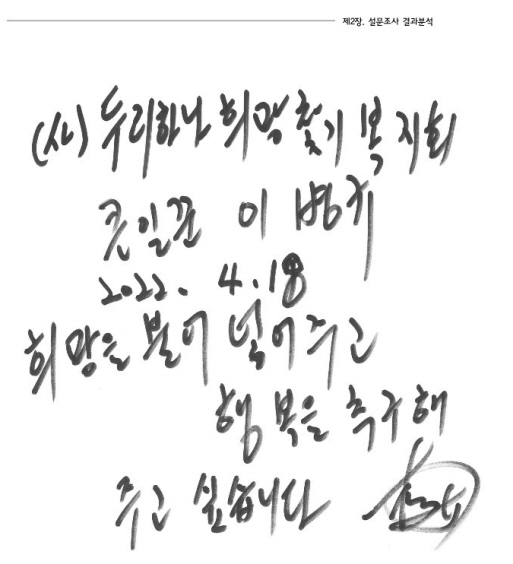 제2장. 설문조사 결과분석
(사) 두리하나 희망찾기 복지회
큰일꾼 이 병규
2022. 4.18
희망을 불어 넣어주고
행복을 추구해
주고 싶습니다